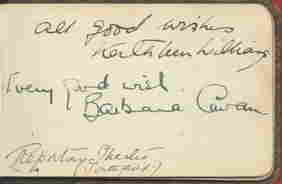 All good wishes
Williams
Every good wish.
Barbara Cavan
Repertory Theatre